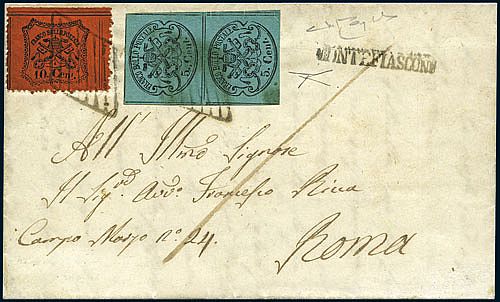 FRANCO BOLLO POSTALE
10 Cent.
FRANCO BOLLO POSTALE 5 Cent.
FRANCO BOLLO POSTALE 5 Cent.
MONTEFIASCONE
All' Illmo Signore
Il Sigre Avvo Francesco Riva
Campo Marzo no 24.
Roma